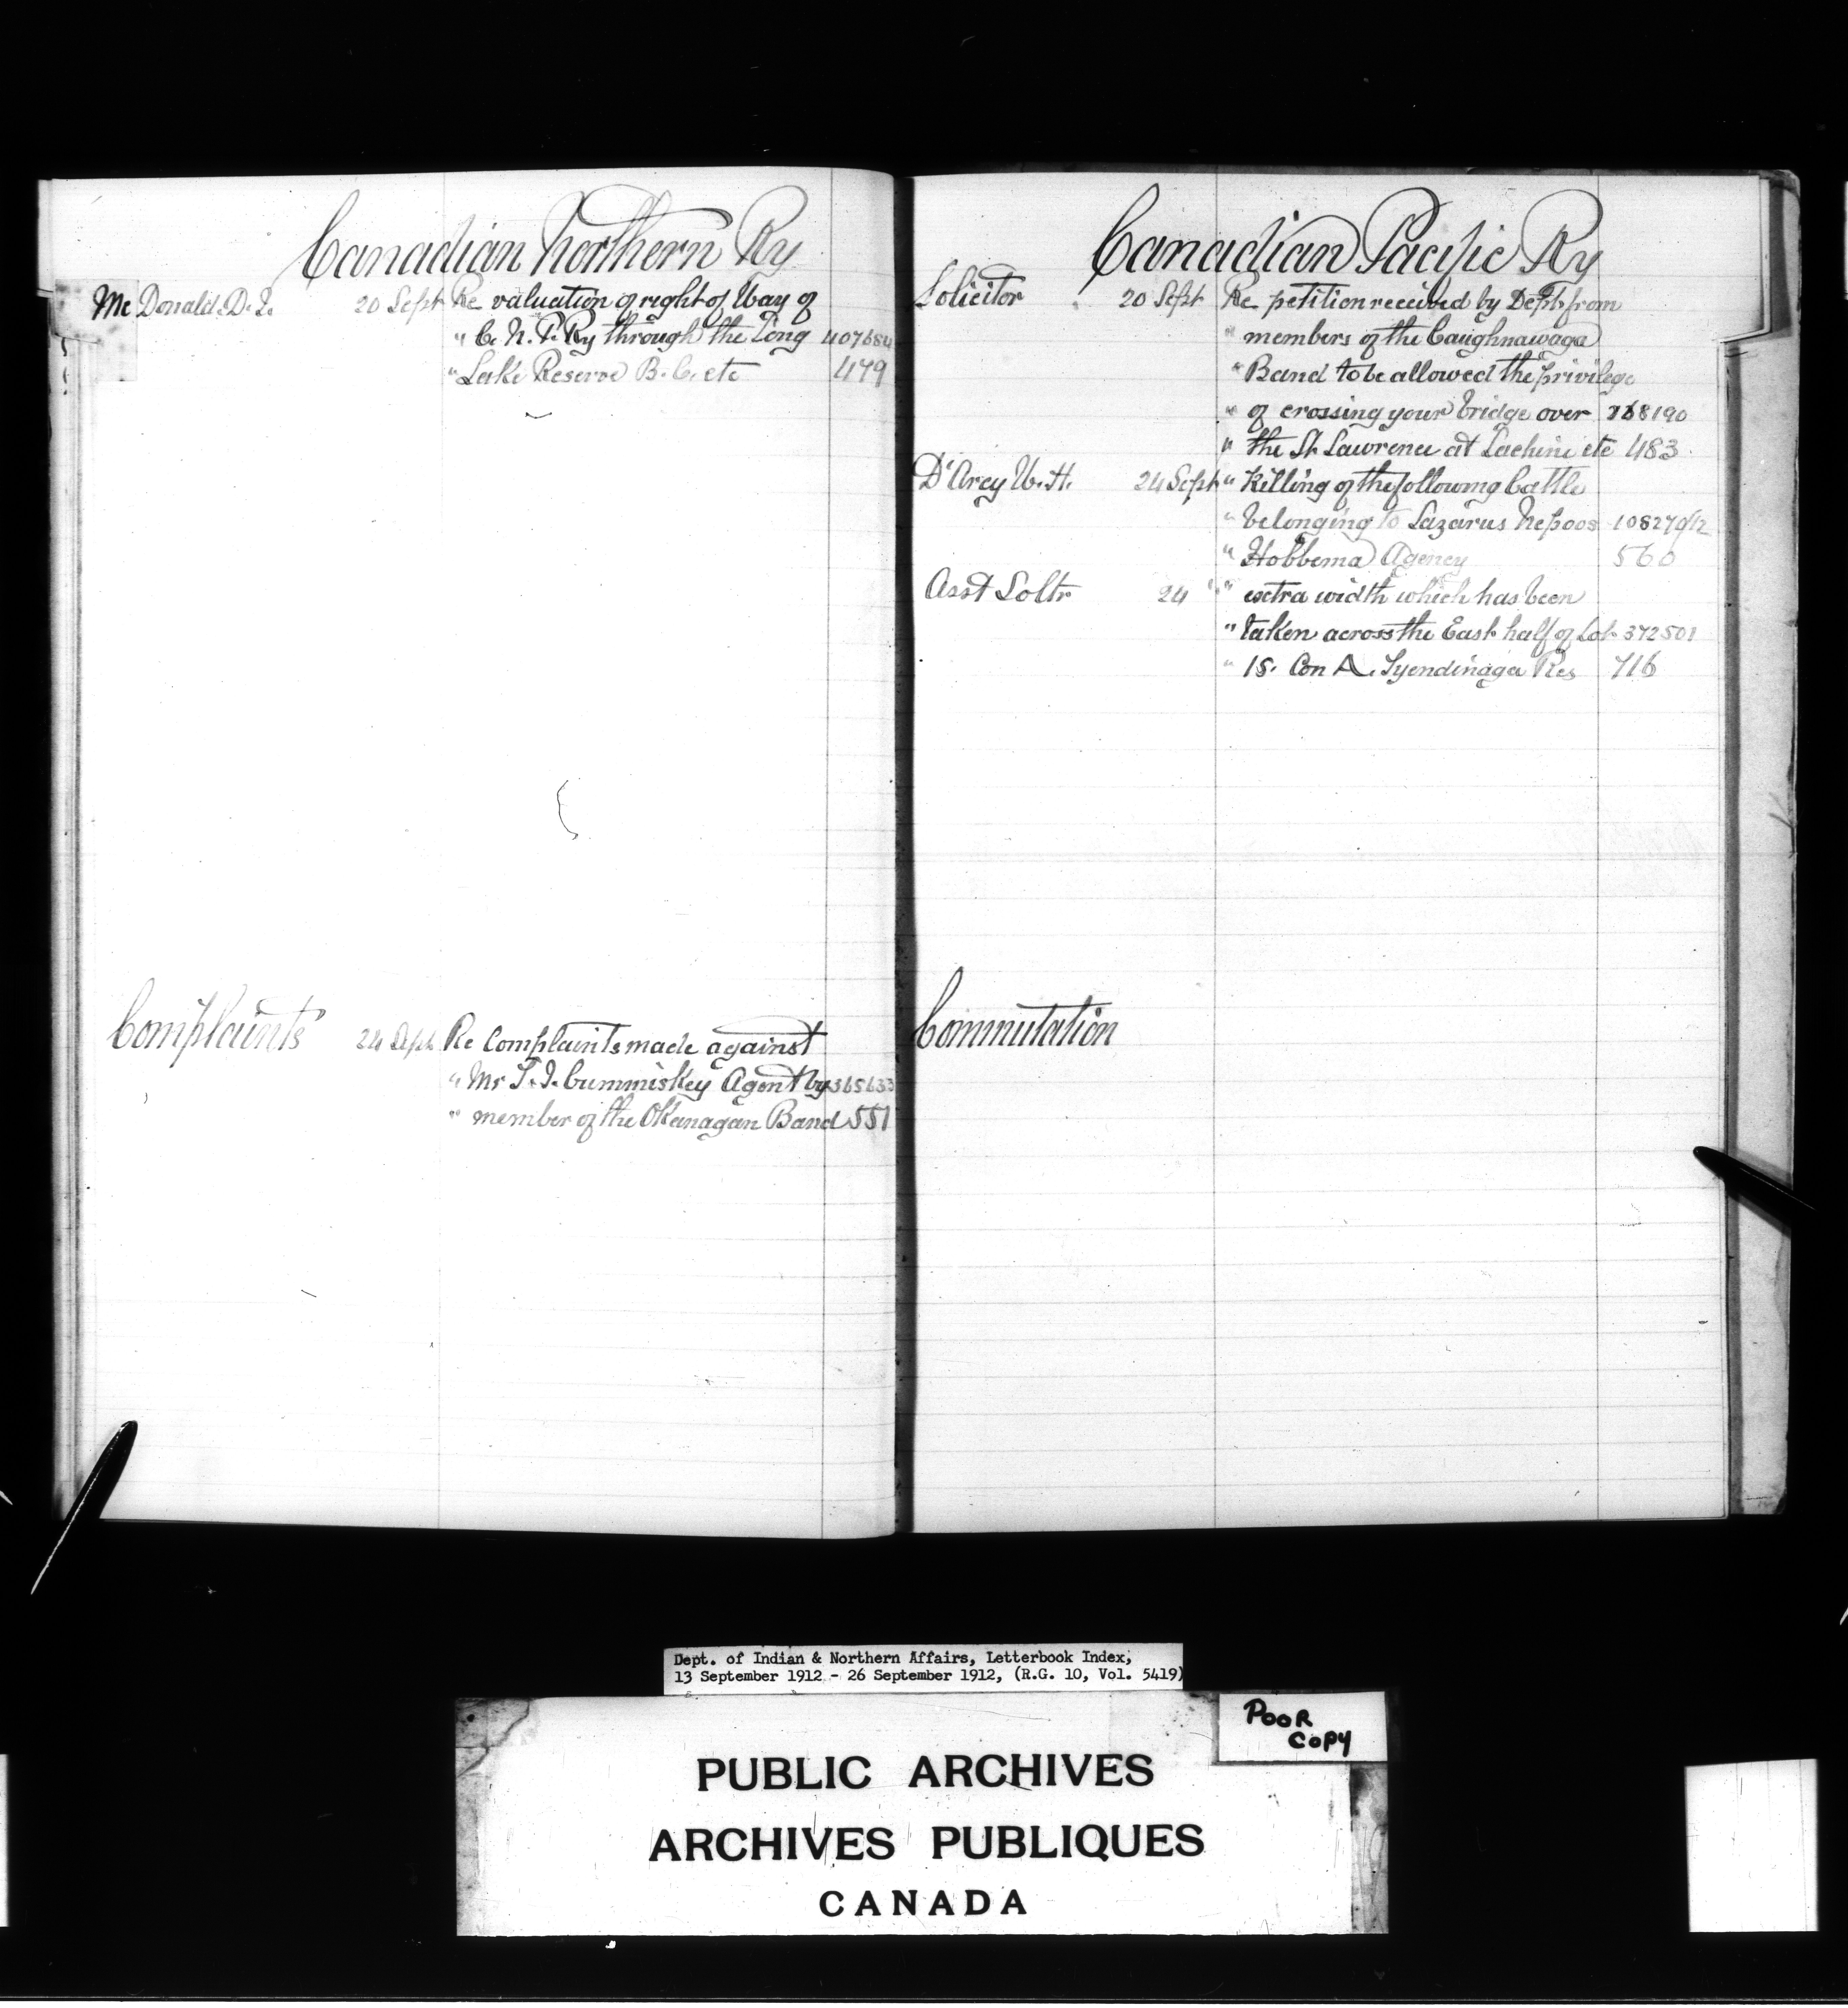 Canadian Northern Ry
Mc Donald. D. D. 20 Sept Re valuation of right of Way of
" C. N. P. Ry through the Long 407684
" Lake Reserve B. C. etc 479
Complaints 24 Sept. Re Complaints made against
" Mr T. J. Cummiskey Agent by 365633
" member of the Okanagan Band 551
Canadian Pacific Ry
Solicitor 20 Sept Re petition received by Dept. from
" members of the Caughnawaga
" Band to be allowed the privilege
" of crossing your bridge over 168190
" the St. Lawrence at Lachine etc 483
D'Arcy W. H. 24 Sept " Killing of the following Cattle
" belonging to Lazarus Nepoos 10827
" Hobbema Agency 560
Asst Soltr 24 " " extra width which has been
" taken across the East half of Lot 372501
" 15. Con A. Tyendinaga Res 716
Commutation
Dept. of Indian & Northern Affairs, Letterbook Index,
13 September 1912 - 26 September 1912, (R.G. 10, Vol. 5419)
POOR
COPY
PUBLIC ARCHIVES
ARCHIVES PUBLIQUES
CANADA